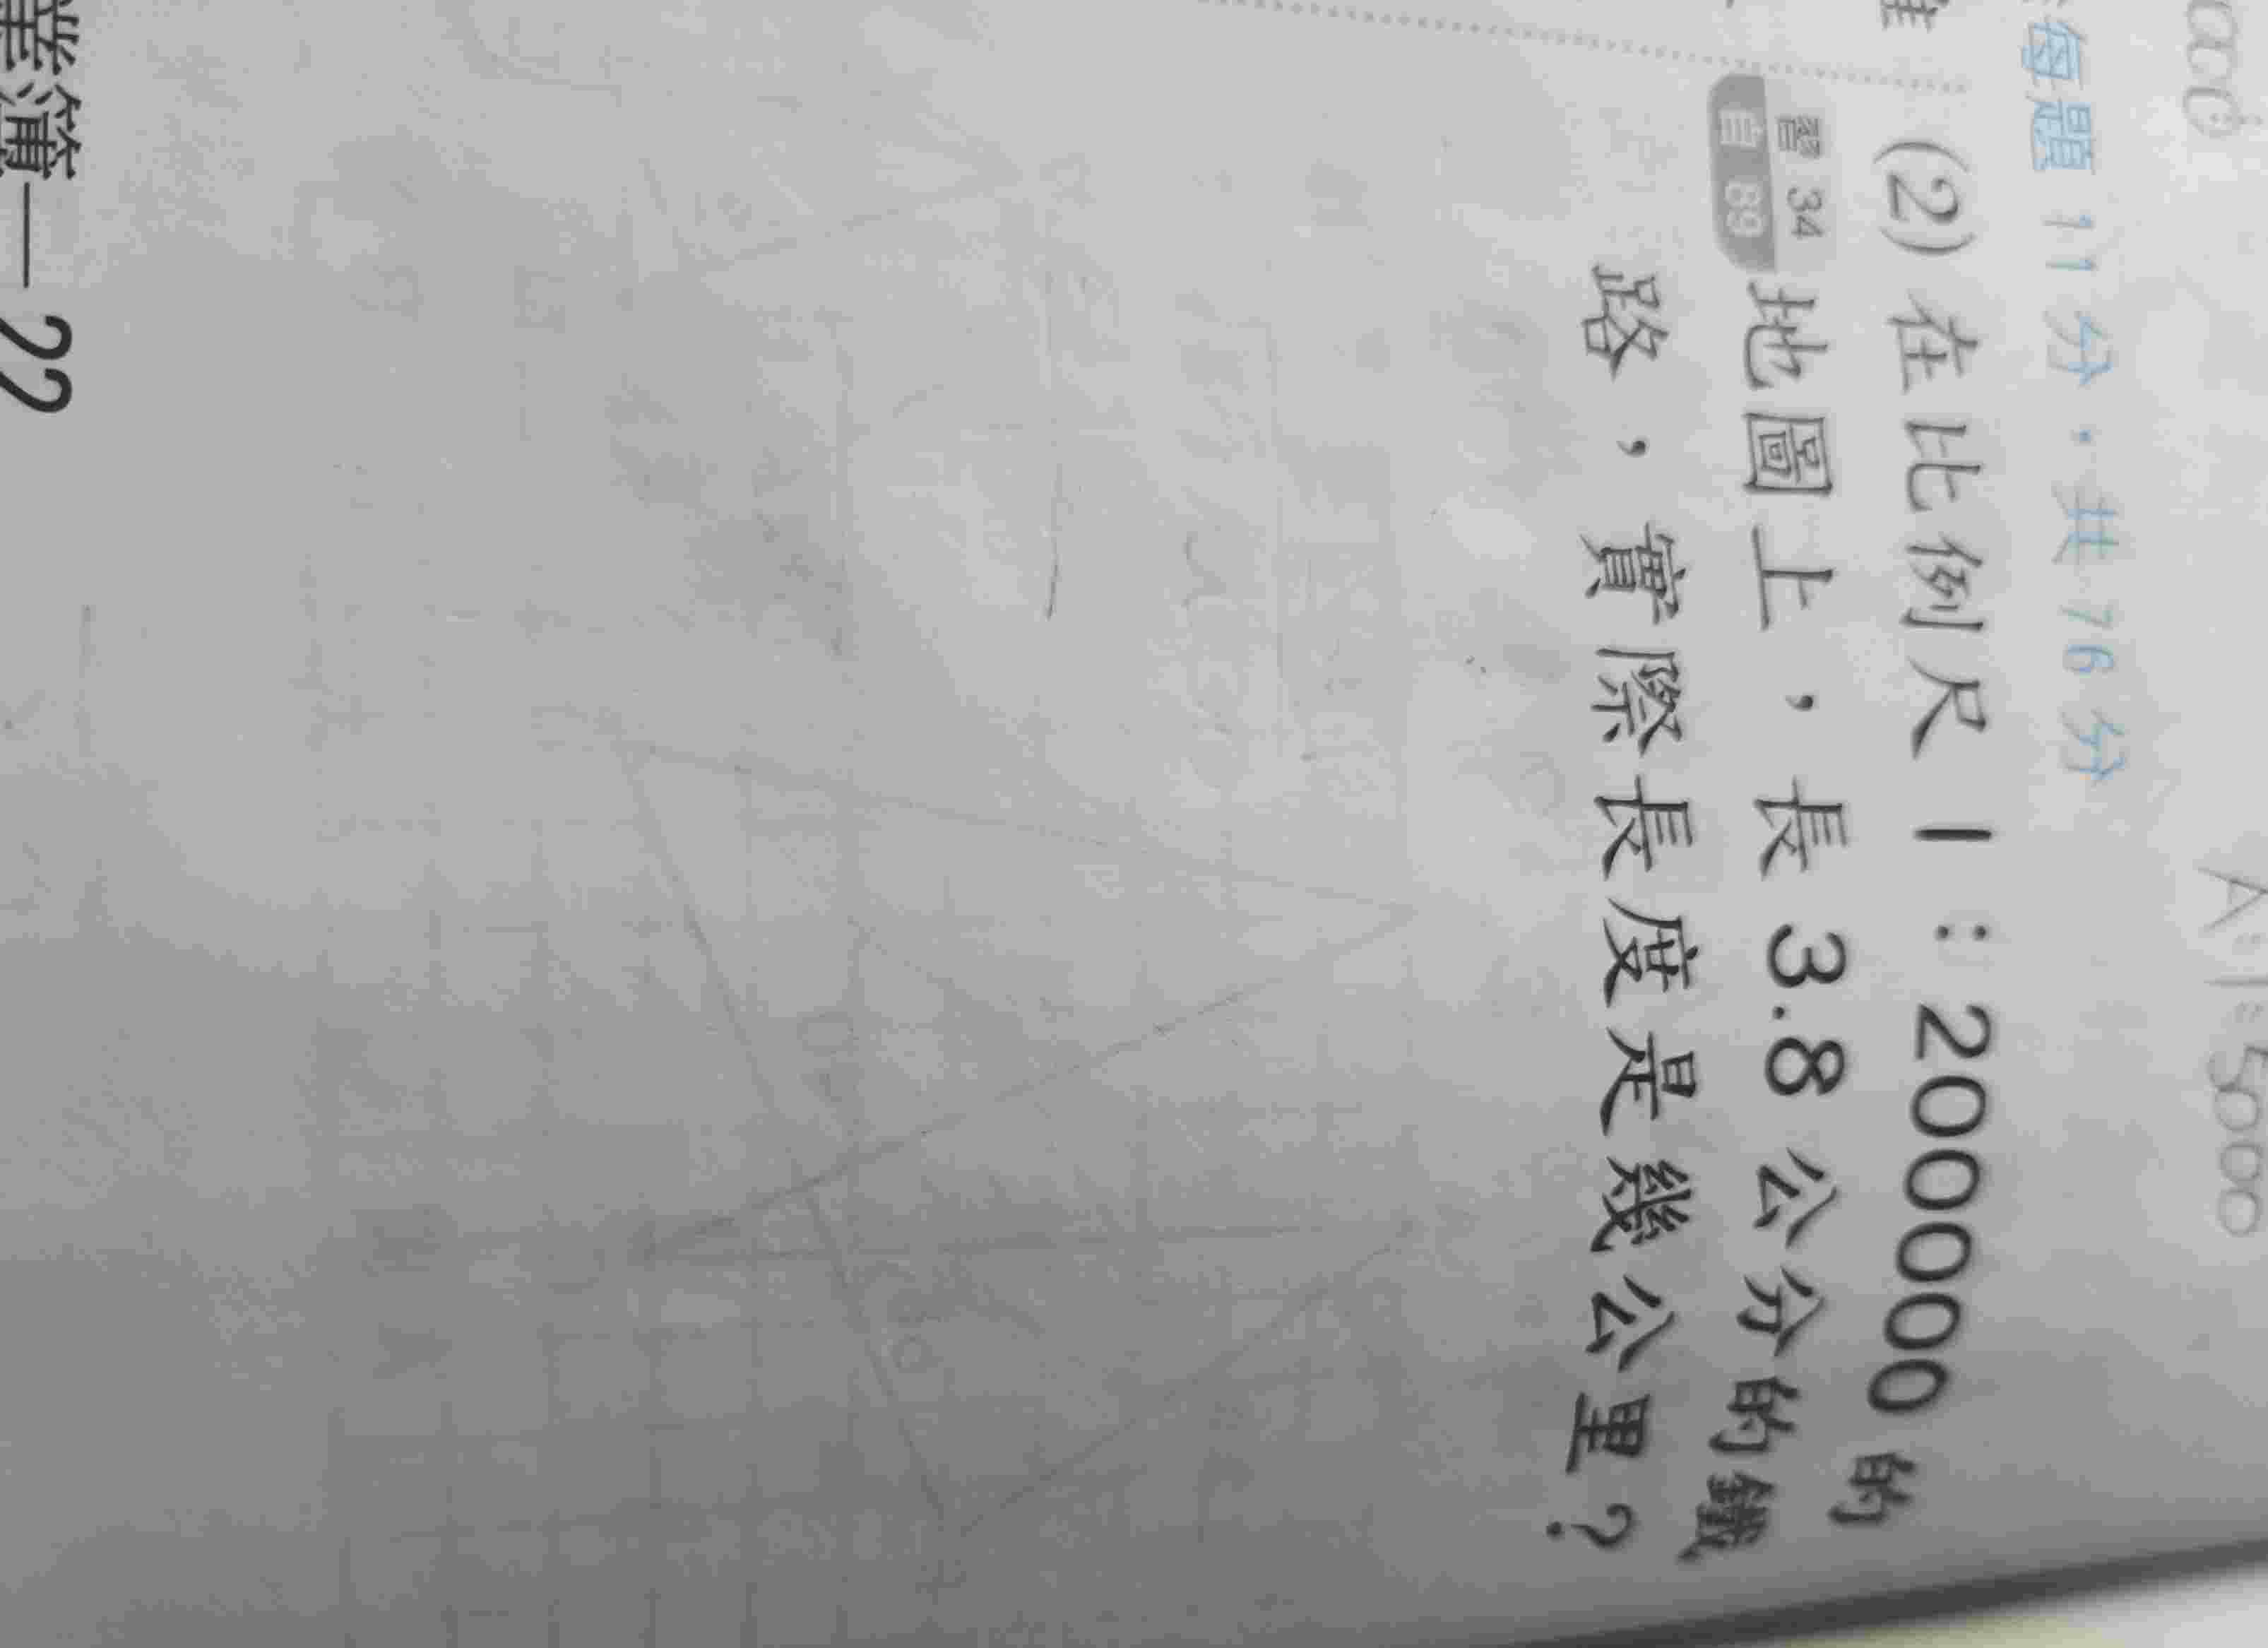 A：1：5000
每題 11 分，共 76 分
(2) 在比例尺 1：200000 的
習 34
自 89
地圖上，長 3.8 公分的鐵
路，實際長度是幾公里？
業簿－22